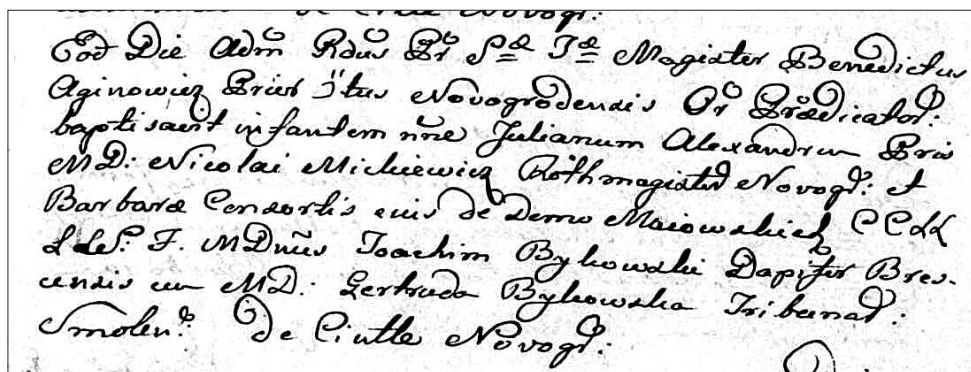 de Citte Novogr:
Eod Die Adm Rdus Pr S: T: Magister Benedictus
Aginowicz Prior Ntus Novogrodensis Or Prædicator:
baptisavit infantem nne Julianum Alexandrum Pris
MD: Nicolai Mickiewicz Rothmagistri Novogr: et
Barbaræ Consortis eius de Domo Maiowskich CCLL
LLe: F. MDnus Joachim Bykowski Dapifer Bres-
censis cu MD: Gertruda Bykowska Tribunat:
Smolen: De Ciutte Novogr: